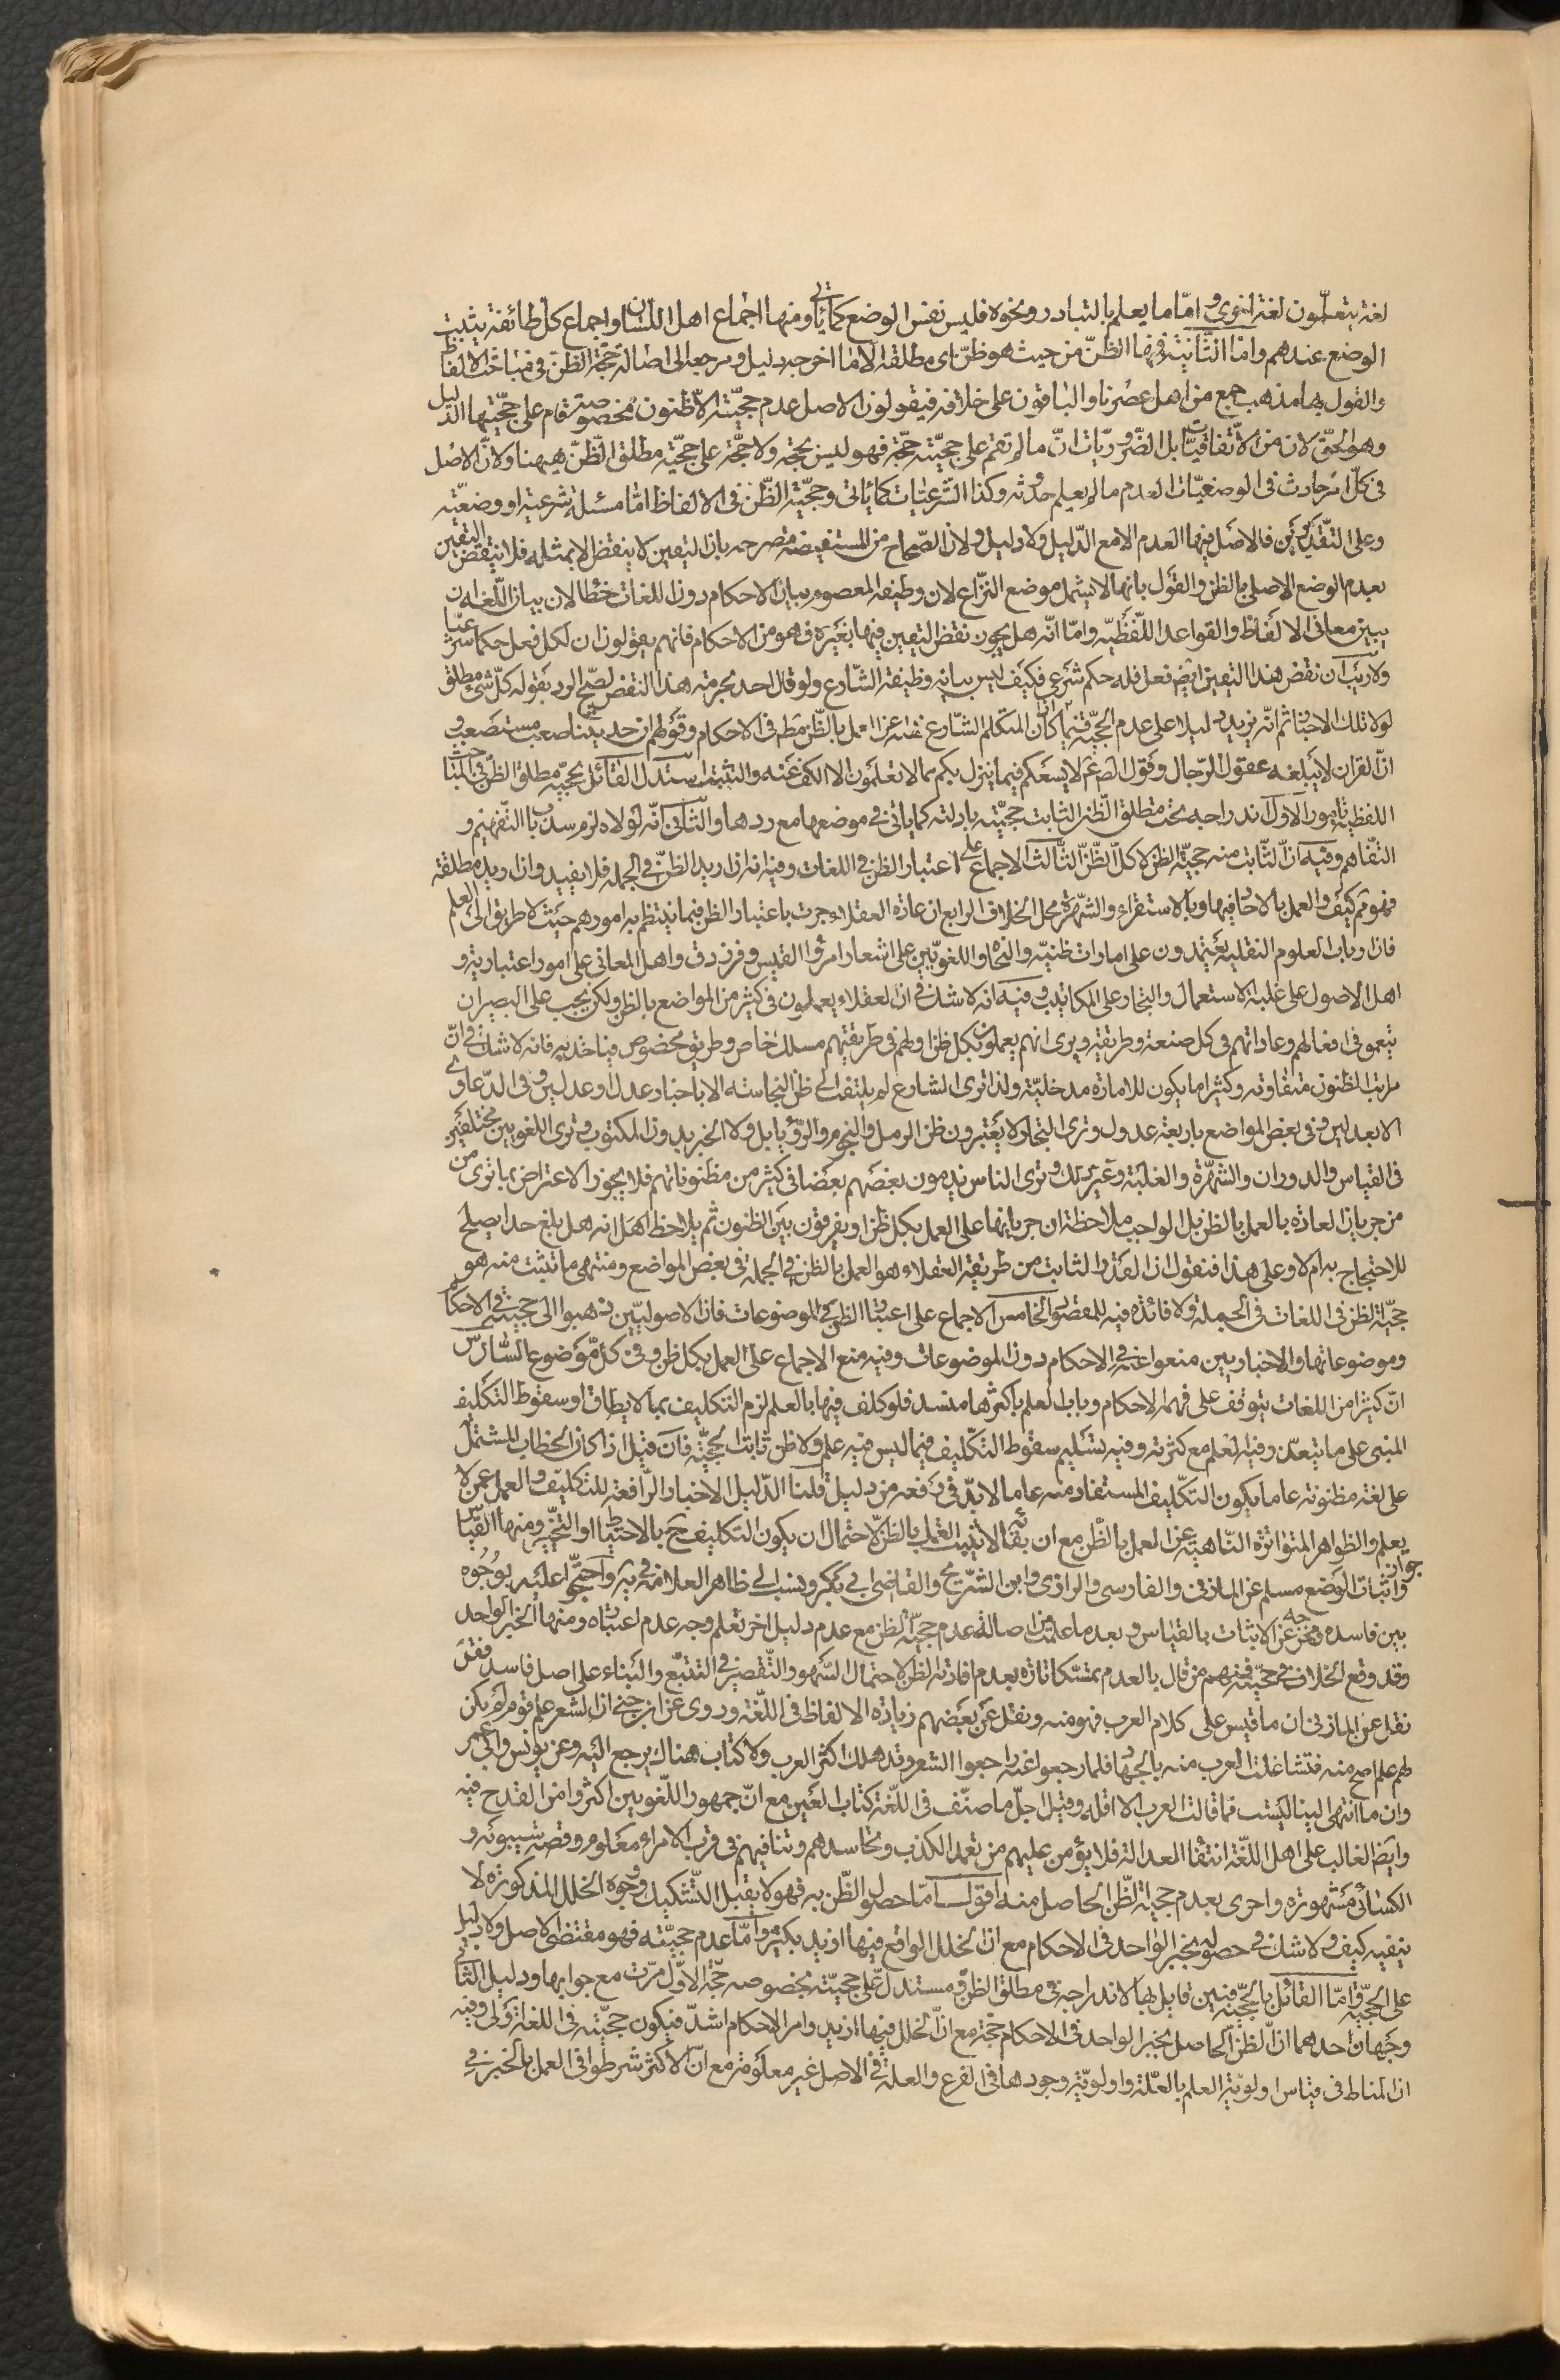 لغة يتعلمون لغة اخرى واما ما يعلم بالتبادر ونحوه فليس نفس الوضع كما يأتي ومنها اجماع اهل اللسان او اجماع كل طائفة يثبت
الوضع عندهم واما الثانية فمنها الظنّ من حيث هو ظنّ اى مطلقه الا ما اخرجه دليل ومرجعه الى اصالة حجّية الظنّ فى مباحث الالفاظ
والقول بها مذهب جمع من اهل عصرنا والباقون على خلافه فيقولون الاصل عدم حجيّته الا ظنون مخصوصة قام على حجّيتها الدليل
وهو الحقّ لانه من الاتفاقيّات بل الضّروريّات انّ ما لم تقم على حجيّته حجّة فهو ليس بحجة ولا حجّة على حجيّة مطلق الظّنّ هيهنا ولانّ الاصل
فى كلّ امر حادث فى الوضعيّات العدم ما لم يعلم حدوثه وكذا الشّرعيّات كما ياتى وحجيّة الظّن فى الالفاظ امّا مسئلة شرعية او وضعيّة
وعلى التّقديرين فالاصل فيها العدم الا مع الدّليل ولا دليل ولان الصّحاح من المستفيضة مصرحة بان اليقين لا ينقض الا بمثله فلا ينتقض اليقين
بعدم الوضع الاصلى بالظن والقول بانها لا يشمل موضع النزّاع لان وظيفة المعصوم بيان الاحكام دون اللغات خطأ لان بيان اللّغة ان
يبين معانى الالفاظ والقواعد اللّفظيّه وامّا انّه هل يجوز نقض اليقين فيها بغيره فهو من الاحكام فانهم يقولون ان لكل فعل حكما شرعيّا
ولا ريب ان نقض هذا اليقين ايضا فعل فله حكم شرعى فكيف ليس بيانه وظيفة الشّارع ولو قال احد بحرمة هذا النقض لصحّ الرد بقوله كلّ شئ مطلق
لولا تلك الاخبار ثم انّه يزيد دليلا على عدم الحجّية فيما كان المتكلم الشّارع نهيه عن العمل بالظّن مطلقا فى الاحكام وقولهم ان حديثنا صعب مستصعب و
انّ القران لا يبلغه عقول الرّجال وقول الص عم لا يسعكم فيما ينزل بكم مما لا تعلمون الا الكف عنه والتثبت استدل القائل بحجيّة مطلق الظنّ فى المباحث
اللفظية بامور الاول اندراجه تحت مطلق الظّن الثابت حجيّته بادلته كما ياتى فى موضعها مع ردها والثّانى انّه لولاه لزم سد باب التّفهيم و
التفّاهم وفيه انّ الثّابت منه حجيّة الظن لا كل الظّنّ الثّالث الاجماع على اعتبار الظن فى اللغات وفيه انه ان اريد الظنّ فى الجملة فلا يفيد وان اريد مطلقه
فهو ثم كيف والعمل بالاحاد فيها وبالاستقراء والشّهرة محل الخلاف الرابع ان عادة العقلاء جرت باعتبار الظن فيما ينتظم به امورهم حيث لا طريق الى العلم
فان ارباب العلوم النقلية يعتمدون على امارات ظنيّه والنحاة واللغويّين على اشعار امرؤ القيس وفرزدق واهل المعانى على امور اعتبارية و
اهل الاصول على غلبة الاستعمال والتجار على المكاتيب وفيه انه لا شك فى ان العقلاء يعملون فى كثير من المواضع بالظن ولكن يجب على البصير ان
يتعمق فى افعالهم وعاداتهم فى كل صنعة وطريقة ويرى انهم يعملون بكل ظن او لهم فى طريقتهم مسلك خاص وطريق مخصوص فياخذ به فانه لا شك فى انّ
مراتب الظنون متفاوتة وكثيرا ما يكون للامارة مدخليّة ولذا ترى الشارع لم يلتفت الى ظن النجاسة الا باخبار عدل او عدلين وفى الدّعاوى
الا بعدلين وفى بعض المواضع باربعة عدول وترى التجار لا يعتبرون ظن الرمل والنجوم والرّؤيا بل ولا الخبر بدون المكتوب وترى اللغويين مختلفين
فى القياس والدوران والشهرة والغلبة وغير ذلك وترى الناس يذمون بعضهم بعضا فى كثير من مظنوناتهم فلا يجوز الاعتراض بما ترى من
من جريان العادة بالعمل بالظن بل الواجب ملاحظة ان جريانها على العمل بكل ظن او يفرقون بين الظنون ثم يلاحظ اهل انه هل بلغ حدا يصلح
للاحتجاج به ام لا وعلى هذا فنقول ان القدر الثابت من طريقة العقلاء هو العمل بالظن فى الجملة فى بعض المواضع ومنتهى ما تثبت منه هو
حجيّة الظن فى اللغات فى الجملة ولا فائدة فيه للمقصود الخامس الاجماع على اعتبار الظن فى الموضوعات فان الاصوليّين ذهبوا الى حجيته فى الاحكام
وموضوعاتها والاخباريين منعوا عنه فى الاحكام دون الموضوعات وفيه منع الاجماع على العمل بكل ظن وفى كل موضوع السّادس
انّ كثيرا من اللغات يتوقف على فهمه الاحكام وباب العلم باكثرها منسد فلو كلف فيها بالعلم لزم التكليف بما لا يطاق او سقوط التكليف
المبنى على ما يتعذر فيه العلم مع كثرته وفيه تسليم سقوط التكليف فيما ليس فيه علم ولا ظن ثابت الحجيّة فان قيل اذا كان الخطاب المشتمل
على لغة مظنونة عاما يكون التكليف المستفاد منه عاما لا بدّ فى رفعه من دليل قلنا الدّليل الاخبار الرّافعة للتكليف والعمل عمن لا
يعلم والظواهر المتواترة النّاهية عن العمل بالظّن مع ان بقائه لا يثبت العمل بالظن لاحتمال ان يكون التكليف ح بالاحتياط او التخيير ومنها القياس
واثبات الوضع مسلم عن المازنى والفارسى والرازى وابن الشّريح والقاضى ابى بكر وينسب الى ظاهر العلامة فى يه واحتجّوا عليه بوجوه
بين فاسدة ومخرجة عن الاثبات بالقياس وبعد ما علمت من اصالة عدم حجيّة الظن مع عدم دليل اخر تعلم وجه عدم اعتباره ومنها الخبر الواحد
وقد وقع الخلاف فى حجيّته فمنهم من قال بالعدم متمسّكا تارة بعدم افادته الظن لاحتمال السّهو والتّقصير فى التتبّع والبناء على اصل فاسد فقد
نقل عن المازنى ان ما قيس على كلام العرب فهو منه ونقل عن بعضهم زيادة الالفاظ فى اللّغة وروى عن ابن جنى ان الشعر علم قوم لم يكن
لهم علم اصح منه فتشاغلت العرب منه بالجهاد فلما رجعوا عنه راجعوا الشعر وقد هلك اكثر العرب ولا كتاب هناك يرجع اليه وعن يونس وابى عمر
وان ما انتهى الينا ليست مما قالت العرب الا اقله وقيل اجلّ ما صنّف فى اللّغة كتاب العين مع انّ جمهور اللّغويين اكثروا من القدح فيه
وايضا الغالب على اهل اللّغة انتفا العدالة فلا يؤمن عليهم من تعمد الكذب وتحاسدهم وتنافيهم فى قرب الامراء معلوم وقصة سيبويه و
الكسائى مشهورة واخرى بعدم حجية الظّن الحاصل منه اقول امّا حصول الظّن به فهو لا يقبل التّشكيك ووجوه الخلل المذكورة لا
ينفيه كيف ولا شك فى حصوله بخبر الواحد فى الاحكام مع ان الخلل الواقع فيها ازيد بكثير وامّا عدم حجيّته فهو مقتضى الاصل ولا دليل
على الحجيّة وامّا القائل بالحجّية فبين قايل بها لاندراجه فى مطلق الظن ومستدل على حجيّته بخصوصه حجّة الاوّل مرّت مع جوابها ودليل الثانى
وجهان احدهما انّ الظن الحاصل بخبر الواحد فى الاحكام حجّة مع انّ الخلل فيها ازيد وامر الاحكام اشدّ فيكون حجيّته فى اللغة اولى وفيه
ان المناط فى قياس اولويّة العلم بالعلّة واولويّة وجودها فى الفرع والعلة فى الاصل غير معلومة مع انّ الاكثر شرطوا فى العمل بالخبر فى